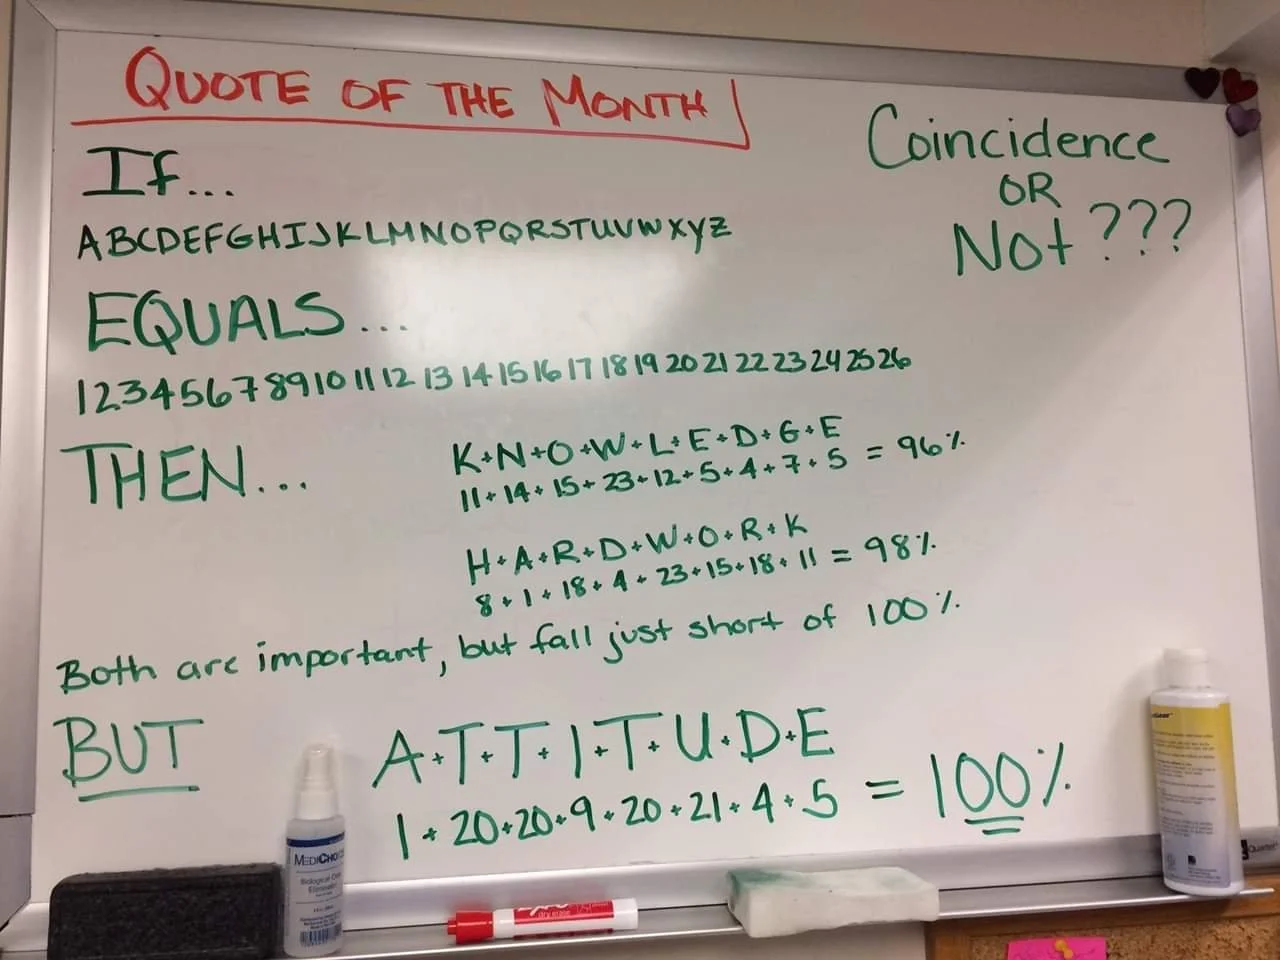 QUOTE OF THE MONTH
If...
ABCDEFGHIJKLMNOPQRSTUVWXYZ
EQUALS...
1 2 3 4 5 6 7 8 9 10 11 12 13 14 15 16 17 18 19 20 21 22 23 24 25 26
THEN...
K+N+O+W+L+E+D+G+E
11+14+15+23+12+5+4+7+5 = 96%
H+A+R+D+W+O+R+K
8+1+18+4+23+15+18+11 = 98%
Both are important, but fall just short of 100%.
BUT
A+T+T+I+T+U+D+E
1+20+20+9+20+21+4+5 = 100%
Coincidence
OR
Not ???
MEDICHOICE
Biological Odor
Eliminator
expo
dry erase
Quartet